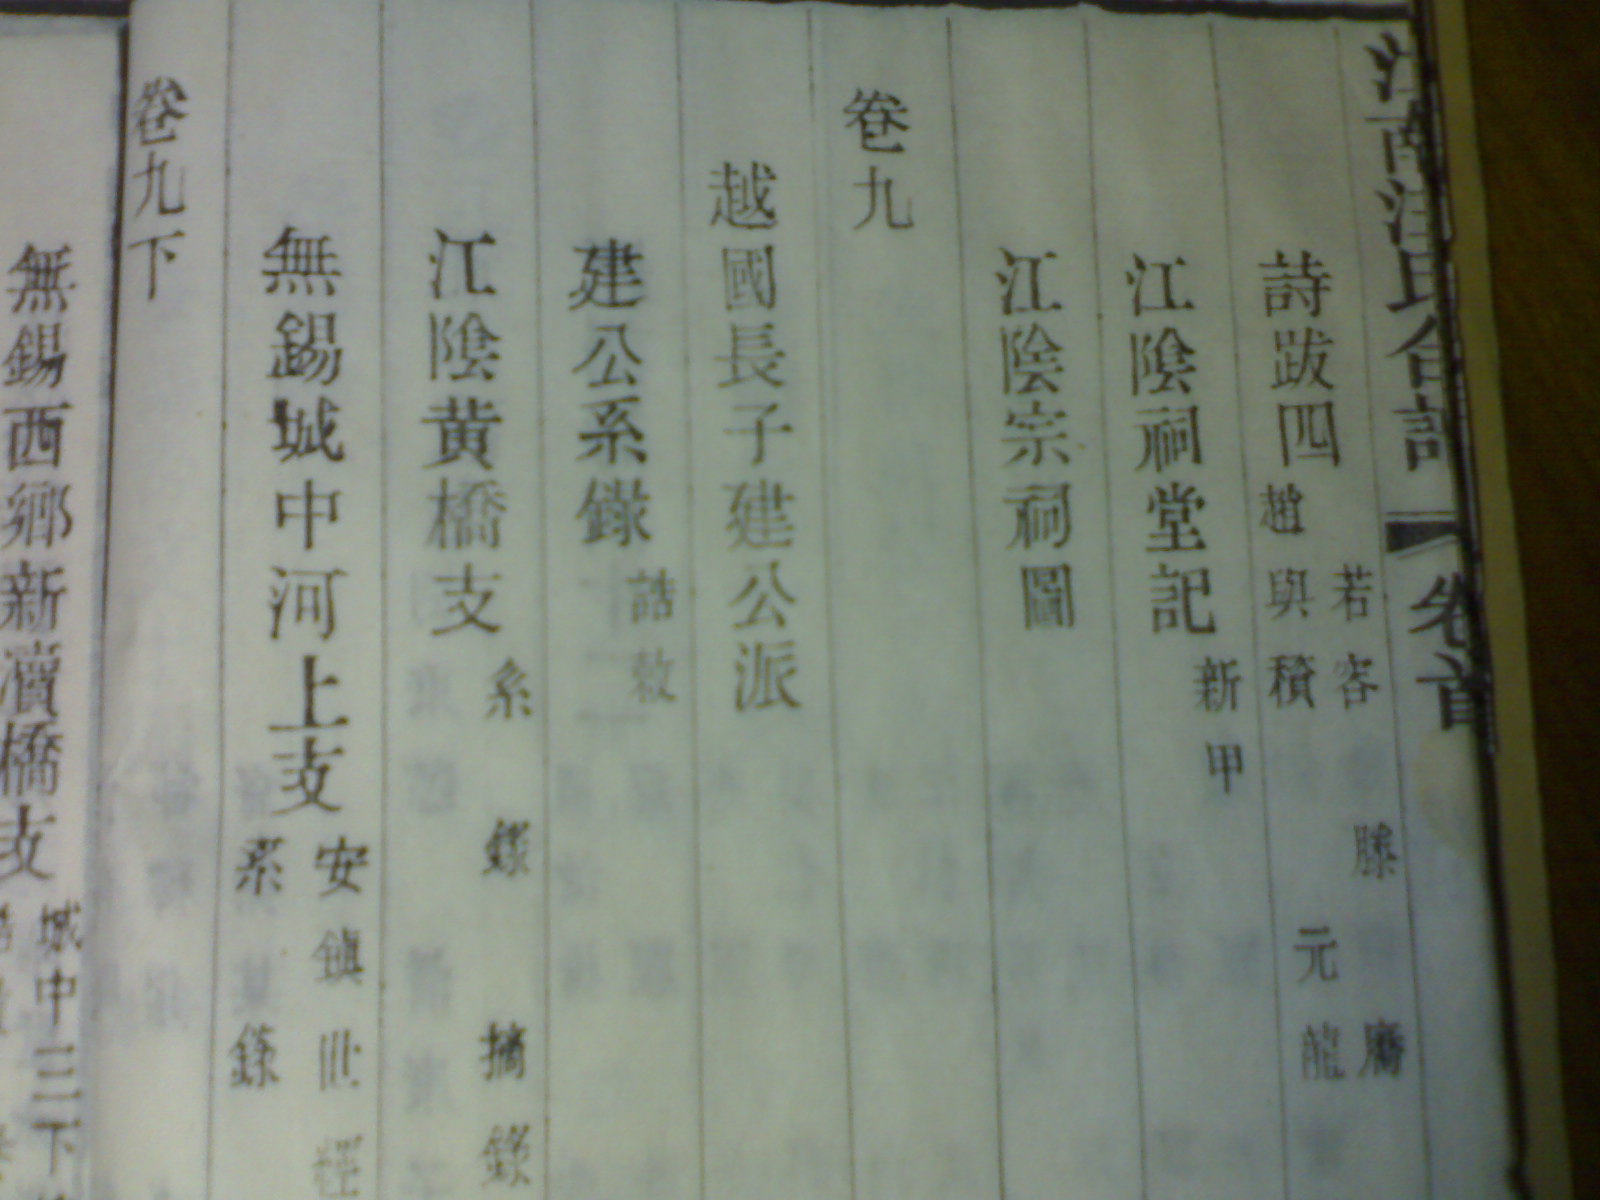 江南汪氏合譜 卷首
詩跋四 趙 若容 滕 鷹
與積 元龍
江陰祠堂記 新甲
江陰宗祠圖
卷九
越國長子建公派
建公系錄 誥敕
江陰黄橋支 系錄 摘錄
無錫城中河上支 安鎮世
系錄
卷九下
無錫西鄉新瀆橋支 城中三下